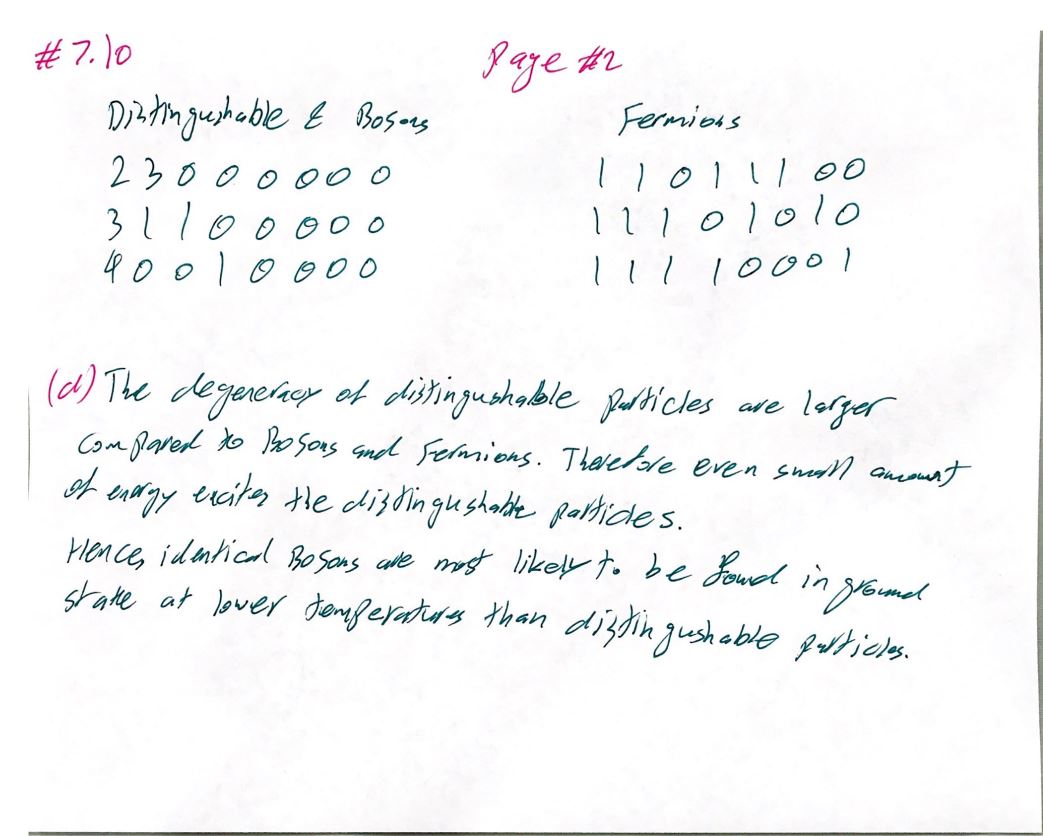 #7.10 Page #2
Distingushable & Bosons Fermions
2 3 0 0 0 0 0 0 1 1 0 1 1 1 0 0
3 1 1 0 0 0 0 0 1 1 1 0 1 0 1 0
4 0 0 1 0 0 0 0 1 1 1 1 0 0 0 1
(d) The degeneracy of distingushable particles are larger
compared to Bosons and Fermions. Therefore even small amount
of energy excites the distingushable particles.
Hence, identical Bosons are most likely to be found in ground
state at lower temperatures than distingushable particles.